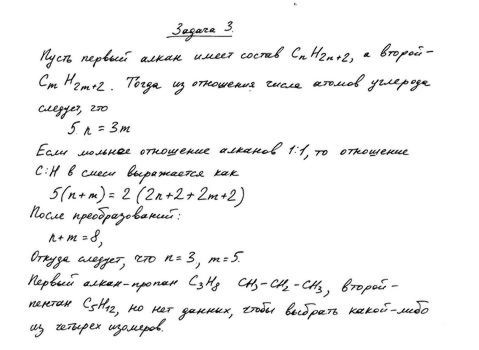 Задача 3.
Пусть первый алкан имеет состав CnH2n+2, а второй-
CmH2m+2. Тогда из отношения числа атомов углерода
следует, что
5·n = 3m
Если мольное отношение алканов 1:1, то отношение
C:H в смеси выражается как
5(n+m) = 2 (2n+2+2m+2)
После преобразований:
n+m = 8,
Откуда следует, что n = 3, m = 5.
Первый алкан-пропан C3H8 CH3-CH2-CH3, второй-
пентан C5H12, но нет данных, чтобы выбрать какой-либо
из четырех изомеров.